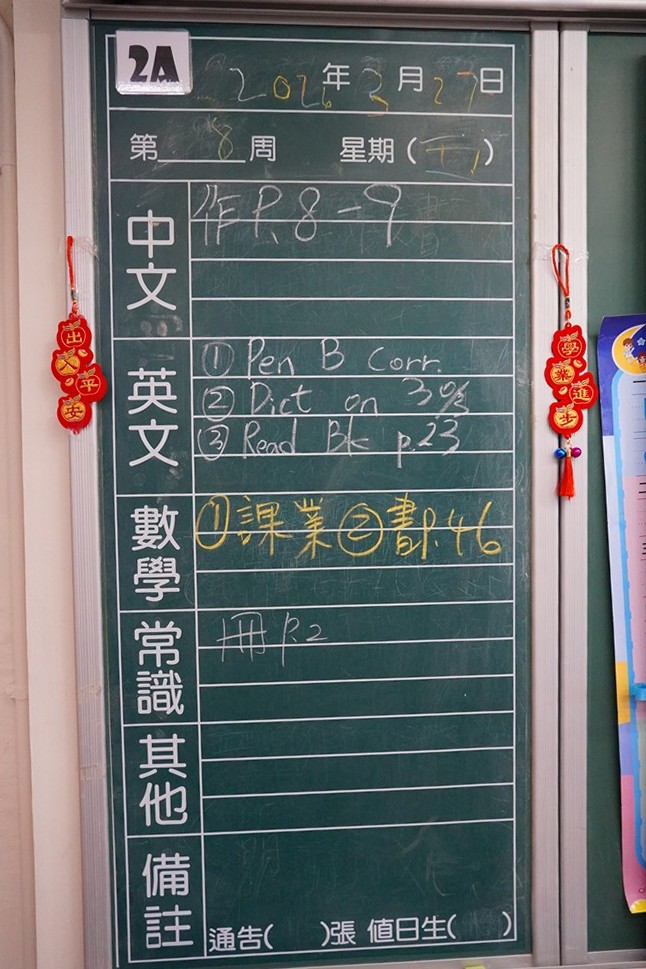 2A
2026年3月27日
第8周 星期(五)
中文
作 P.8-9
英文
① Pen B Corr.
② Dict on 30/3
③ Read Bk p.23
數學
①課業②書P.46
常識
冊 P.2
其他
備註
通告( )張 值日生( )
出入平安
學業進步